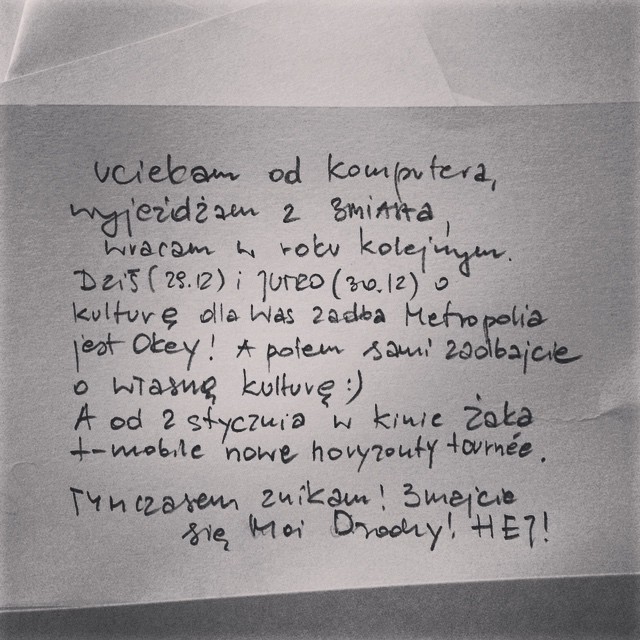 uciekam od komputera,
wyjeżdżam z 3miasta,
wracam w roku kolejnym.
Dziś (29.12) i jutro (30.12) o
kulturę dla Was zadba Metropolia
jest Okey! A potem sami zadbajcie
o własną kulturę :)
A od 2 stycznia w kinie Żaka
t-mobile nowe horyzonty tournée.
Tymczasem znikam! 3majcie
się Moi Drodzy! HEJ!